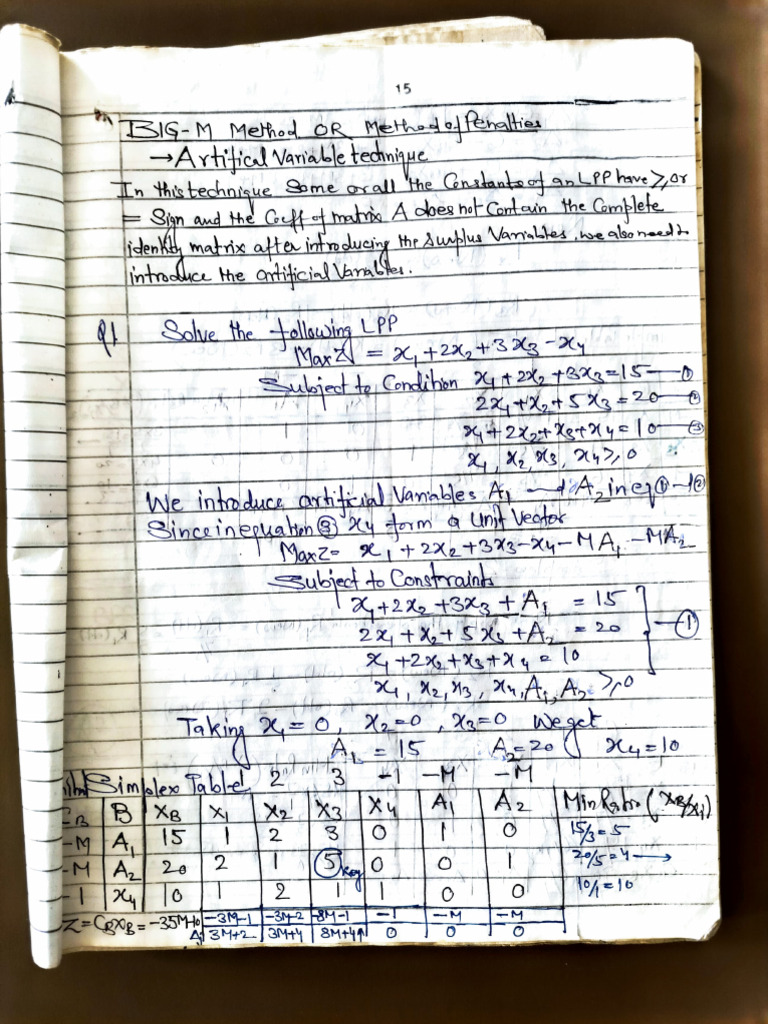 15
BIG-M Method OR Method of Penalties
→ Artifical Variable technique
In this technique Some or all the Constants of an LPP have ≥, or
= Sign and the Coeff of matrix A does not Contain the Complete
identity matrix after introducing the Surplus Variables, we also need to
introduce the artificial Variables.
Q1 Solve the following LPP
Max Z = x₁ + 2x₂ + 3x₃ - x₄
Subject to Condition x₁ + 2x₂ + 3x₃ = 15 — ①
2x₁ + x₂ + 5x₃ = 20 — ②
x₁ + 2x₂ + x₃ + x₄ = 10 — ③
x₁, x₂, x₃, x₄ ≥ 0
We introduce artificial Variables A₁ → A₂ in eq ① – ②
Since in equation ③ x₄ form a Unit Vector
Max Z = x₁ + 2x₂ + 3x₃ - x₄ - MA₁ - MA₂
Subject to Constraints
x₁ + 2x₂ + 3x₃ + A₁ = 15
2x₁ + x₂ + 5x₃ + A₂ = 20 — ①
x₁ + 2x₂ + x₃ + x₄ = 10
x₁, x₂, x₃, x₄, A₁, A₂ ≥ 0
Taking x₁ = 0, x₂ = 0, x₃ = 0 We get
A₁ = 15 A₂ = 20 x₄ = 10
Simplex Table 2 3 -1 -M -M
B XB x₁ x₂ x₃ x₄ A₁ A₂ Min Ratio (XB/x₁)
-M A₁ 15 1 2 3 0 1 0 15/3 = 5
-M A₂ 20 2 1 5 key 0 0 1 20/5 = 4 →
-1 x₄ 10 1 2 1 1 0 0 10/1 = 10
Z = CBXB = -35M-10 -3M-1 -3M-2 -8M-1 -1 -M -M
Δj 3M+2 3M+4 8M+4↑ 0 0 0